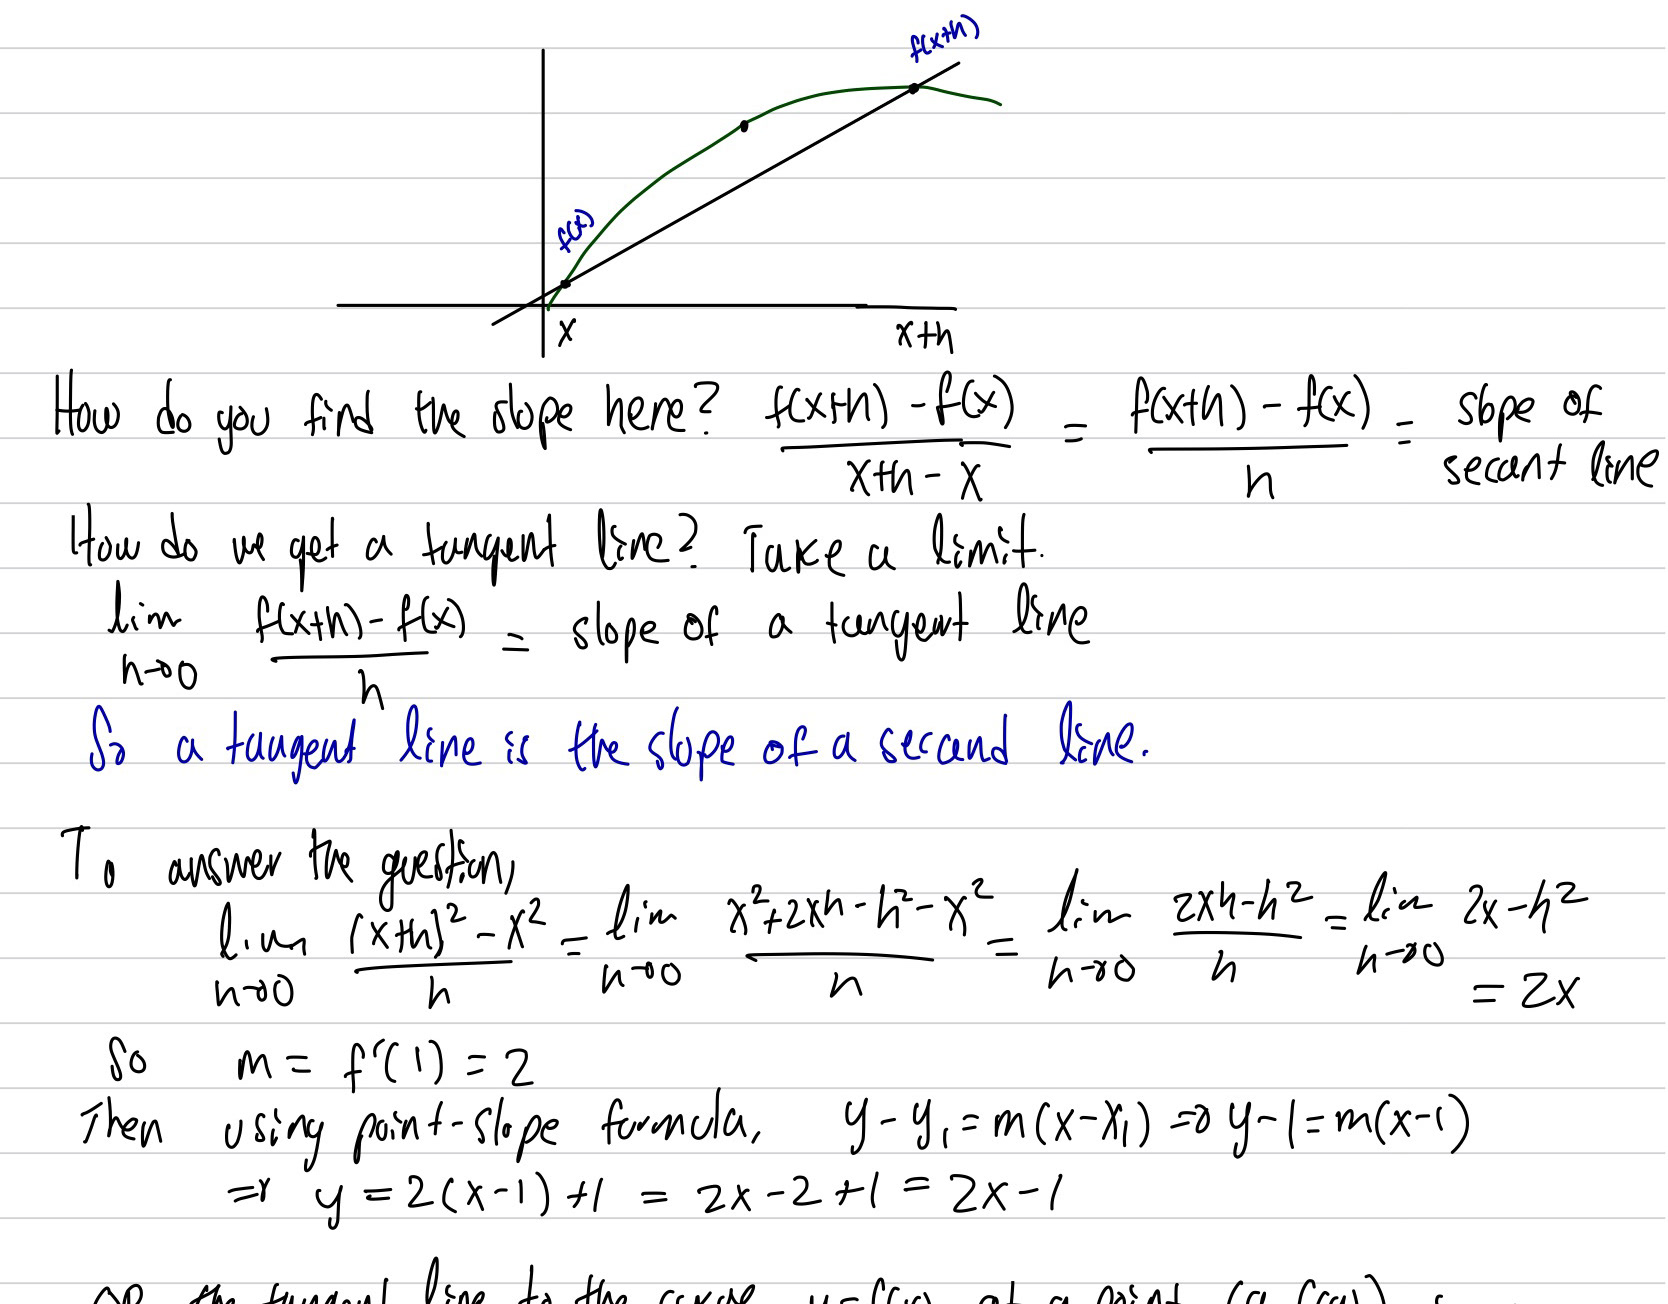 f(x+h)
f(x)
x x+h
How do you find the slope here? f(x+h) - f(x) / x+h - x = f(x+h) - f(x) / h = slope of secant line
How do we get a tangent line? Take a limit.
lim h→0 f(x+h) - f(x) / h = slope of a tangent line
So a tangent line is the slope of a second line.
To answer the question,
lim h→0 (x+h)² - x² / h = lim h→0 x²+2xh - h² - x² / h = lim h→0 2xh - h² / h = lim h→0 2x - h²
= 2x
So m = f'(1) = 2
Then using point-slope formula, y - y₁ = m(x - x₁) ⇒ y - 1 = m(x - 1)
⇒ y = 2(x-1) + 1 = 2x - 2 + 1 = 2x - 1
the tangent line to the curve y = f(x) at a point (a, f(a))